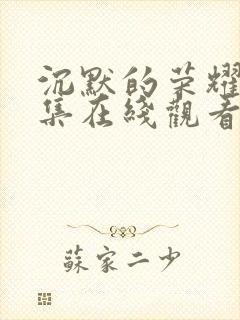 沉默的荣耀
集在綫觀看
蘇家二少